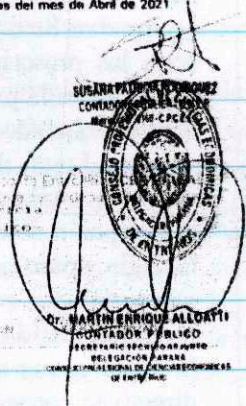 os del mes de Abril de 2021.
SUSANA PATRICIA RODRIGUEZ
CONTADOR
CONSEJO PROFESIONAL CIENCIAS ECONOMICAS
DE ENTRE RIOS
Dr. MARTIN ENRIQUE ALLOATTI
CONTADOR PUBLICO
SECRETARIO TECNICO ADJUNTO
DELEGACIÓN PARANA
CONSEJO PROFESIONAL DE CIENCIAS ECONOMICAS
DE ENTRE RIOS